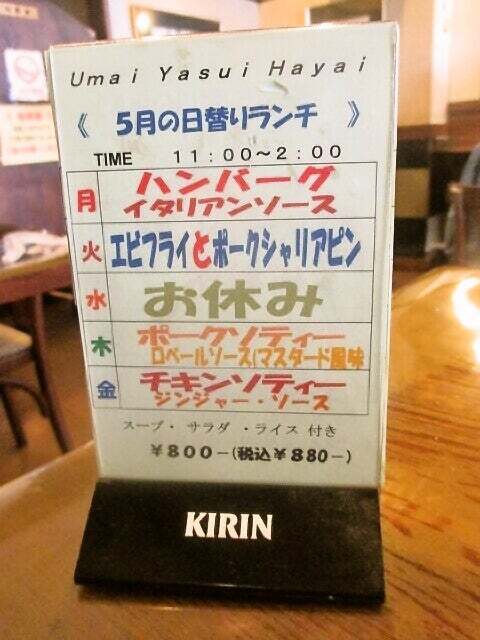 Umai Yasui Hayai
《 5月の日替りランチ 》
TIME 11:00～2:00
月 ハンバーグ
イタリアンソース
火 エビフライとポークシャリアピン
水 お休み
木 ポークソティー
ロベールソース(マスタード風味
金 チキンソティー
ジンジャー・ソース
スープ・サラダ・ライス付き
￥800-(税込￥880-)
KIRIN